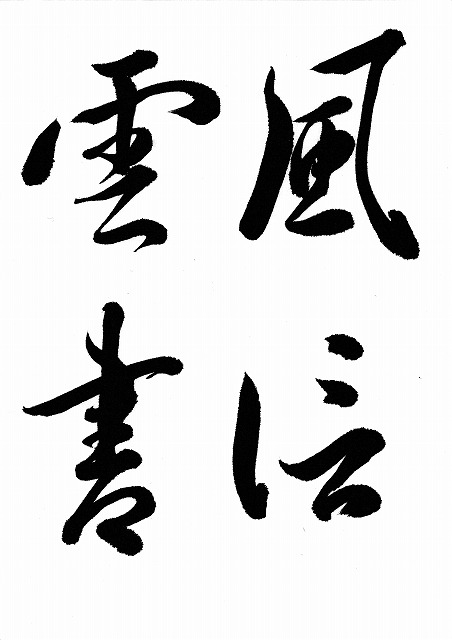 風信
雲書